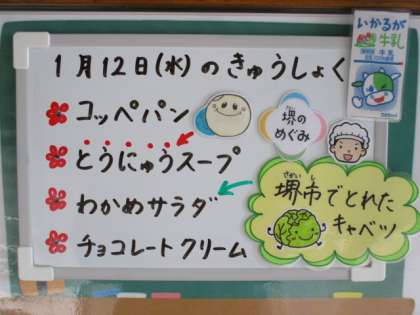 1月12日(水)のきゅうしょく
いかるが
牛乳
コッペパン
堺の
めぐみ
とうにゅうスープ
わかめサラダ
さかいし
堺市でとれた
キャベツ
チョコレートクリーム